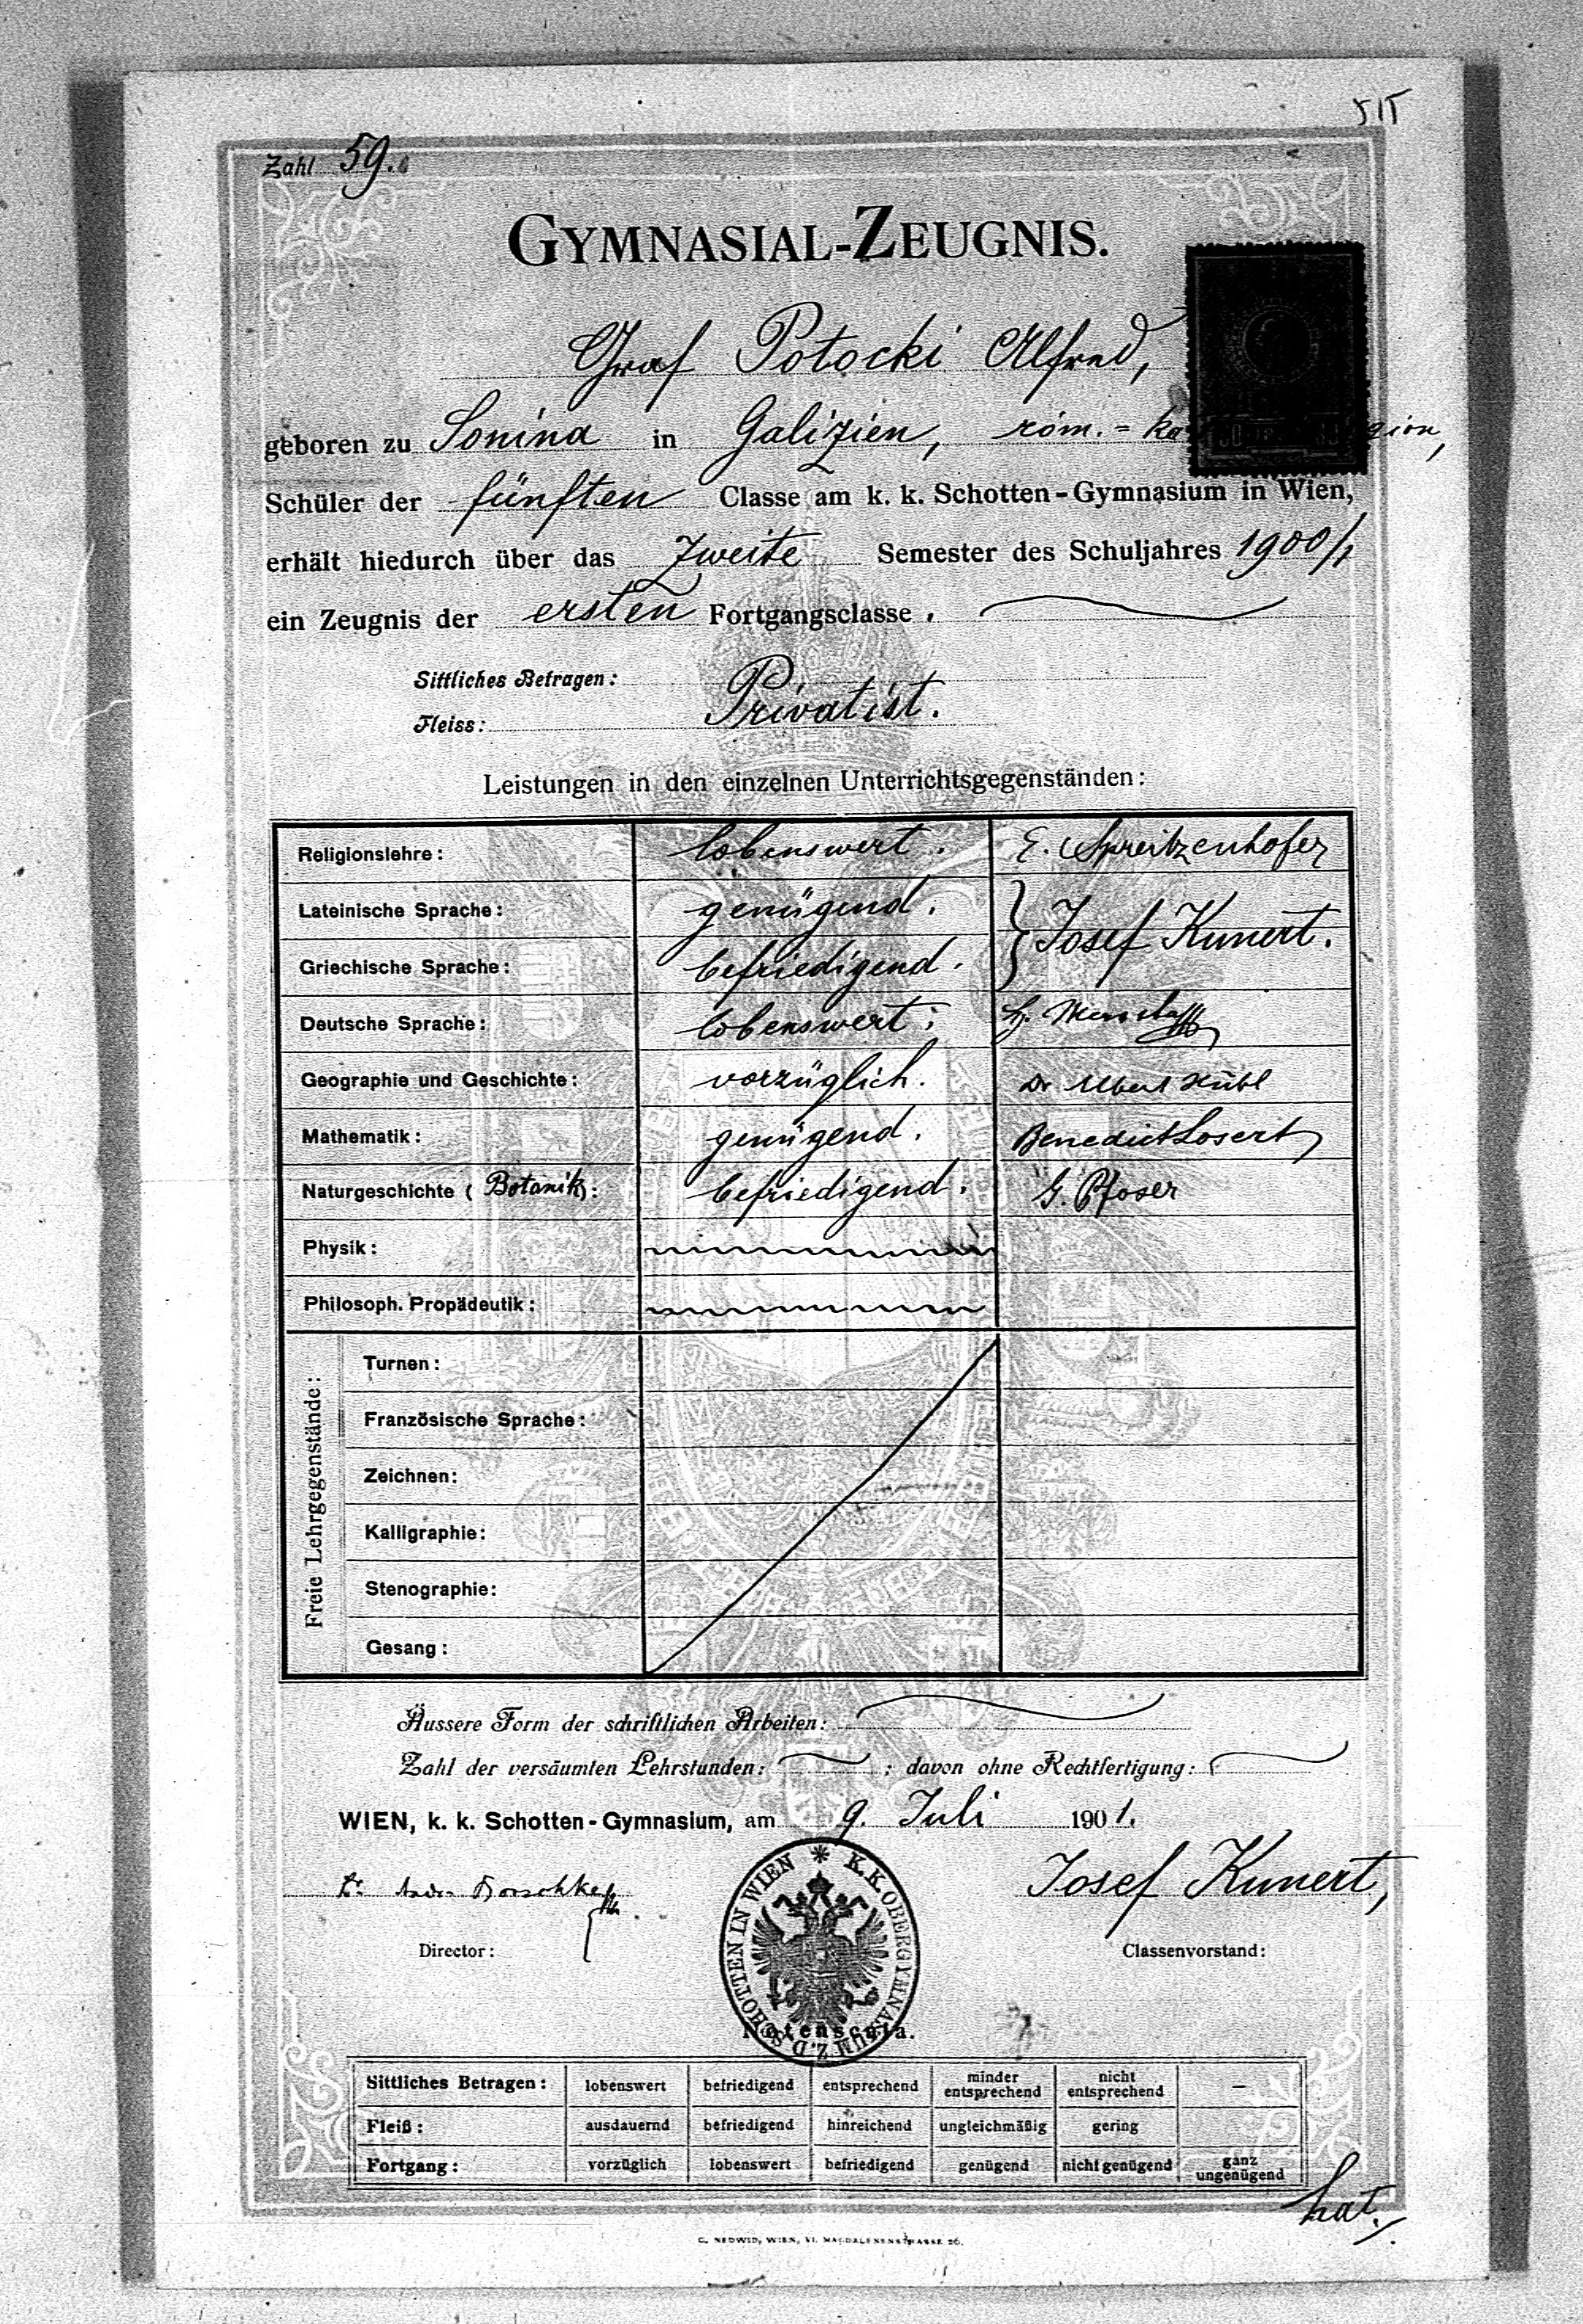 515
Zahl 59.
GYMNASIAL-ZEUGNIS.
Graf Potocki Alfred,
geboren zu Sonina in Galizien, röm.=
Schüler der fünften Classe am k. k. Schotten-Gymnasium in Wien,
erhält hiedurch über das zweite Semester des Schuljahres 1900/1
ein Zeugnis der ersten Fortgangsclasse.
Sittliches Betragen:
Privatist.
Fleiss:
Leistungen in den einzelnen Unterrichtsgegenständen:
Religionslehre: lobenswert. E. Spreitzenhofer
Lateinische Sprache: genügend. Josef Kunert.
Griechische Sprache: befriedigend.
Deutsche Sprache: lobenswert.
Geographie und Geschichte: vorzüglich. Dr Albert Hübl
Mathematik: genügend. Benedict Losert
Naturgeschichte (Botanik): befriedigend. G. Pfoser
Physik:
Philosoph. Propädeutik:
Freie Lehrgegenstände:
Turnen:
Französische Sprache:
Zeichnen:
Kalligraphie:
Stenographie:
Gesang:
Äussere Form der schriftlichen Arbeiten:
Zahl der versäumten Lehrstunden: ; davon ohne Rechtfertigung:
WIEN, k. k. Schotten-Gymnasium, am 9. Juli 1901.
Borschke Josef Kunert,
Director: Classenvorstand:
K. K. OBERGYMNASIUM Z. D. SCHOTTEN IN WIEN
Notenscala.
Sittliches Betragen: lobenswert befriedigend entsprechend minder entsprechend nicht entsprechend —
Fleiß: ausdauernd befriedigend hinreichend ungleichmäßig gering
Fortgang: vorzüglich lobenswert befriedigend genügend nicht genügend ganz ungenügend
hat.
C. NEDWID, WIEN, VI. MAGDALENENSTRASSE 26.